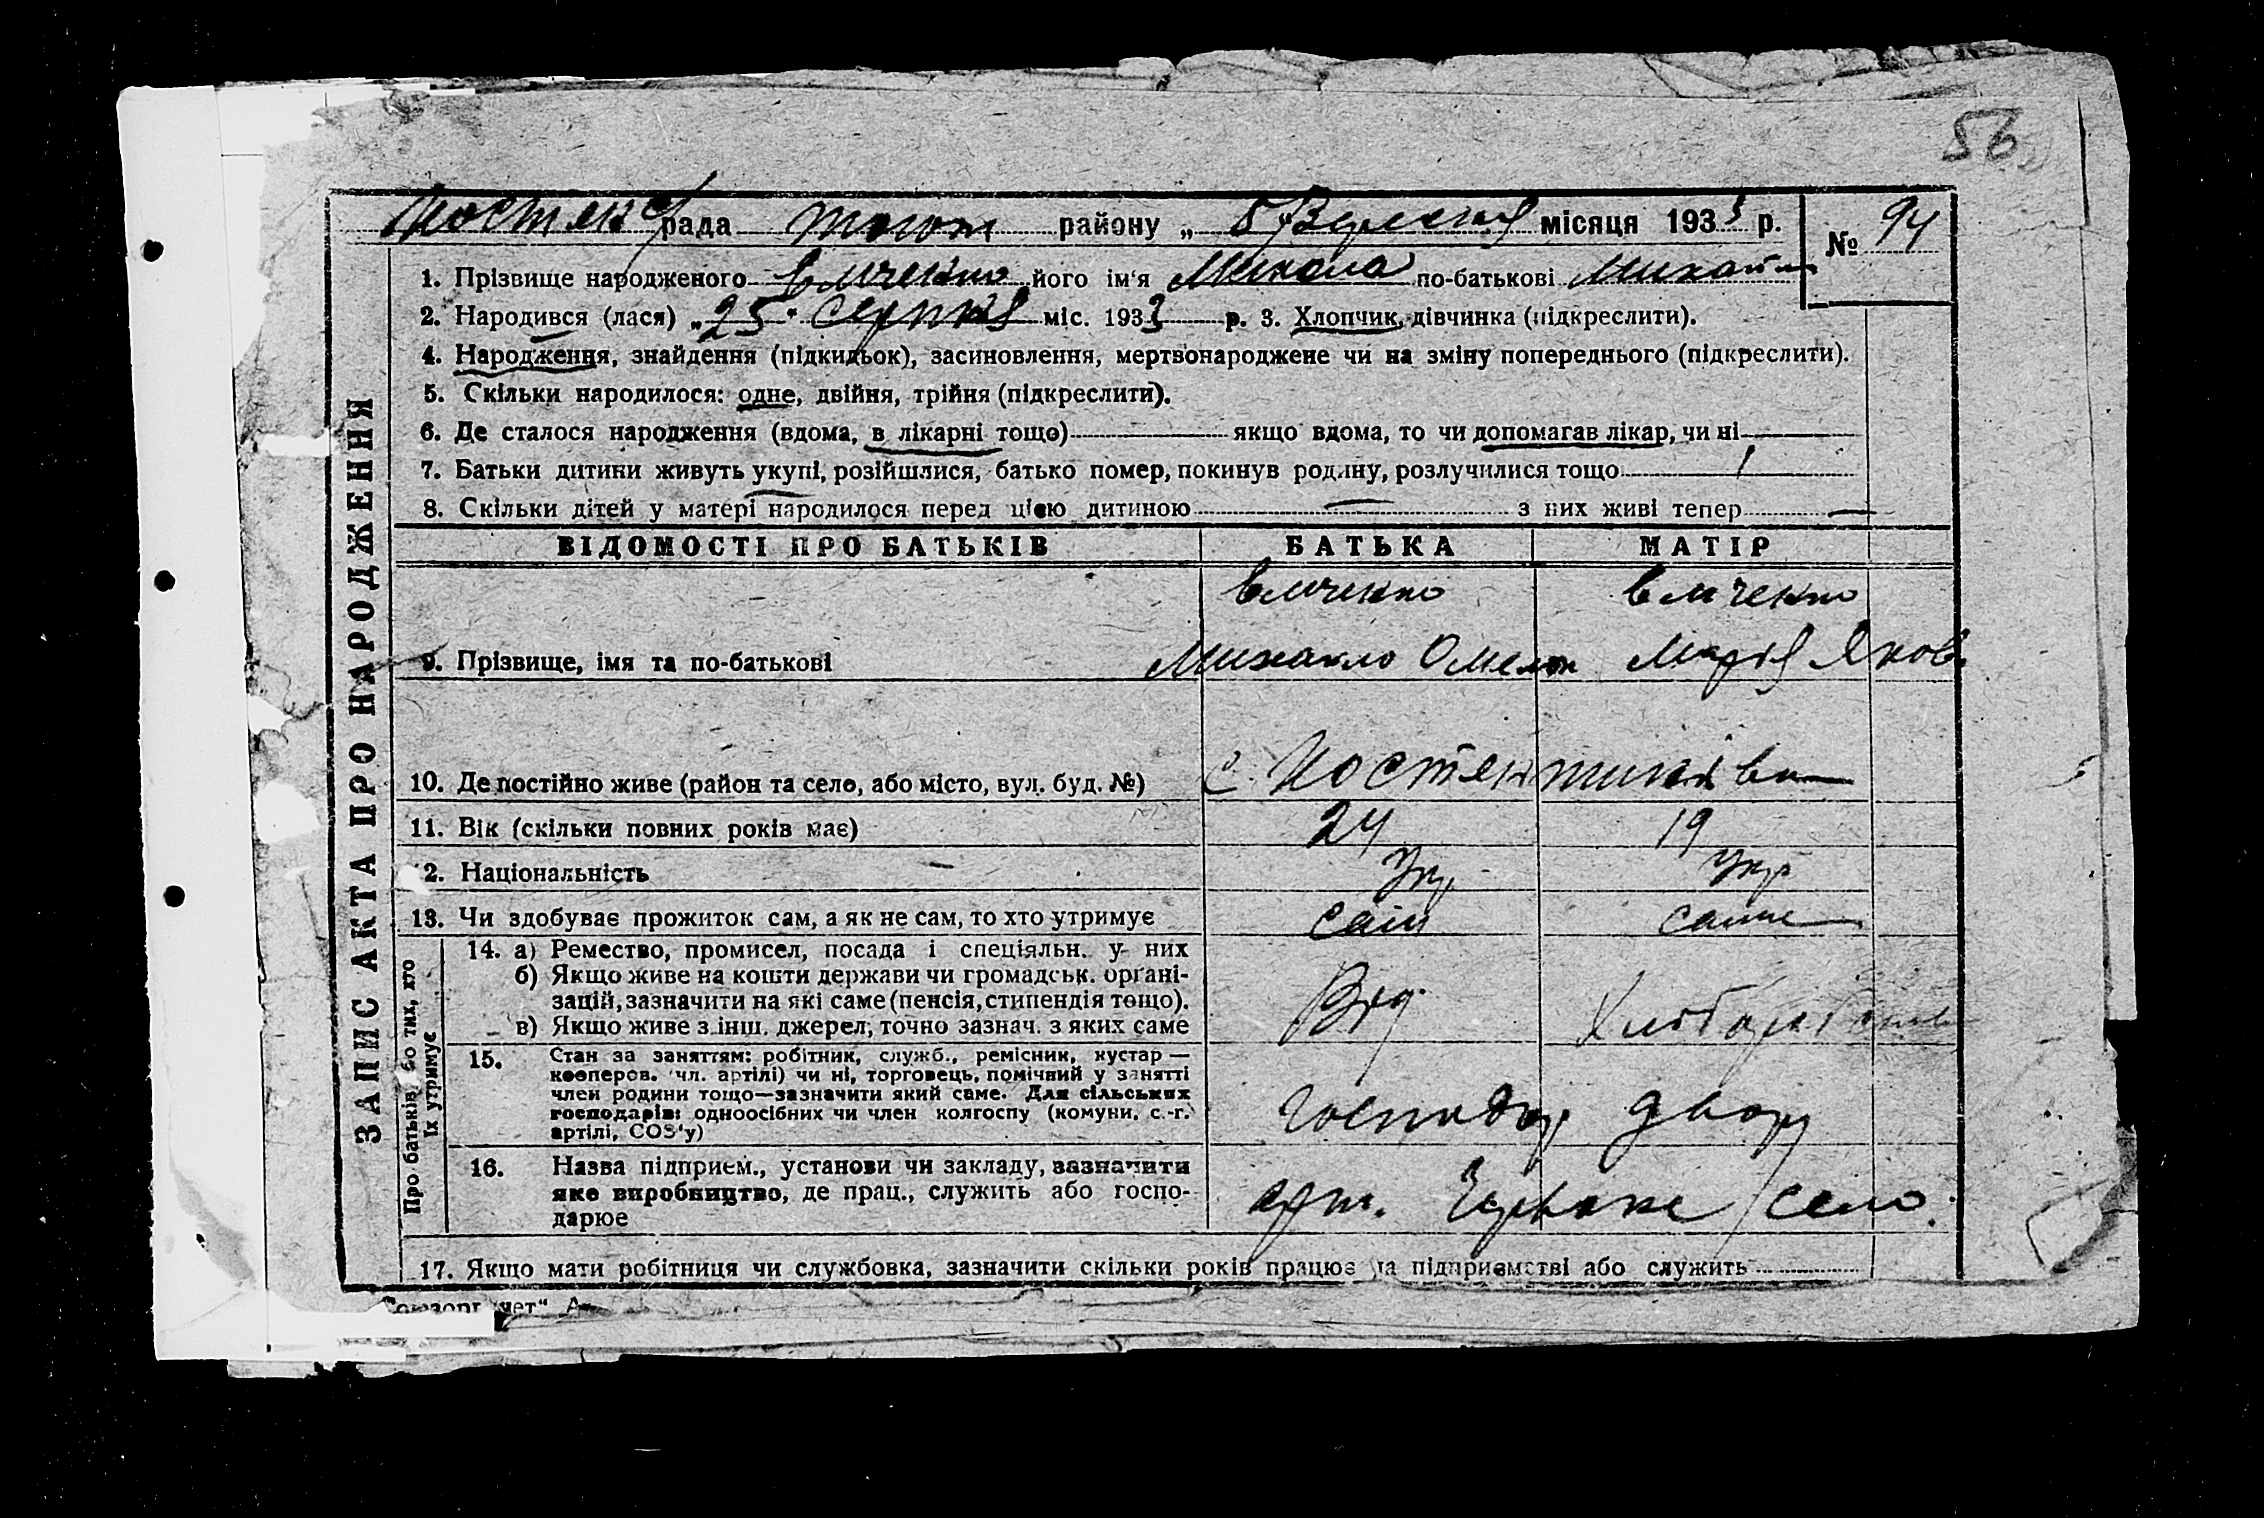 56
рада району „ 5 Вересня місяця 1933 р.
№ 94
1. Прізвище народженого його ім'я Микола по-батькові Михайл
2. Народився (лася) „25" серпня міс. 1933 р. 3. Хлопчик, дівчинка (підкреслити).
4. Народження, знайдення (підкидьок), засиновлення, мертвонароджене чи на зміну попереднього (підкреслити).
5. Скільки народилося: одне, двійня, трійня (підкреслити).
6. Де сталося народження (вдома, в лікарні тощо) якщо вдома, то чи допомагав лікар, чи ні
7. Батьки дитини живуть укупі, розійшлися, батько помер, покинув родину, розлучилися тощо
8. Скільки дітей у матері народилося перед цією дитиною — з них живі тепер —
ЗАПИС АКТА ПРО НАРОДЖЕННЯ
ВІДОМОСТІ ПРО БАТЬКІВ БАТЬКА МАТІР
9. Прізвище, імя та по-батькові Михайло Омелян Марія Яков.
10. Де постійно живе (район та село, або місто, вул. буд. №) с.
11. Вік (скільки повних років має) 24 19
12. Національність Укр Укр
13. Чи здобуває прожиток сам, а як не сам, то хто утримує сам сама
Про батьків або тих, хто
їх утримує
14. а) Ремество, промисел, посада і спеціяльн. у них
б) Якщо живе на кошти держави чи громадськ. органі-
зацій, зазначити на які саме (пенсія, стипендія тощо).
в) Якщо живе з інш. джерел, точно зазнач. з яких саме
15. Стан за заняттям: робітник, служб., ремісник, кустар —
кооперов. (чл. артілі) чи ні, торговець, помічний у занятті
член родини тощо—зазначити який саме. Для сільських
господарів: одноосібних чи член колгоспу (комуни, с.-г.
артілі, СОЗ'у)
господар двору
16. Назва підприєм., установи чи закладу, зазначити
яке виробництво, де прац., служить або госпо-
дарює
арт. Червоне село.
17. Якщо мати робітниця чи службовка, зазначити скільки років працює на підприємстві або служить